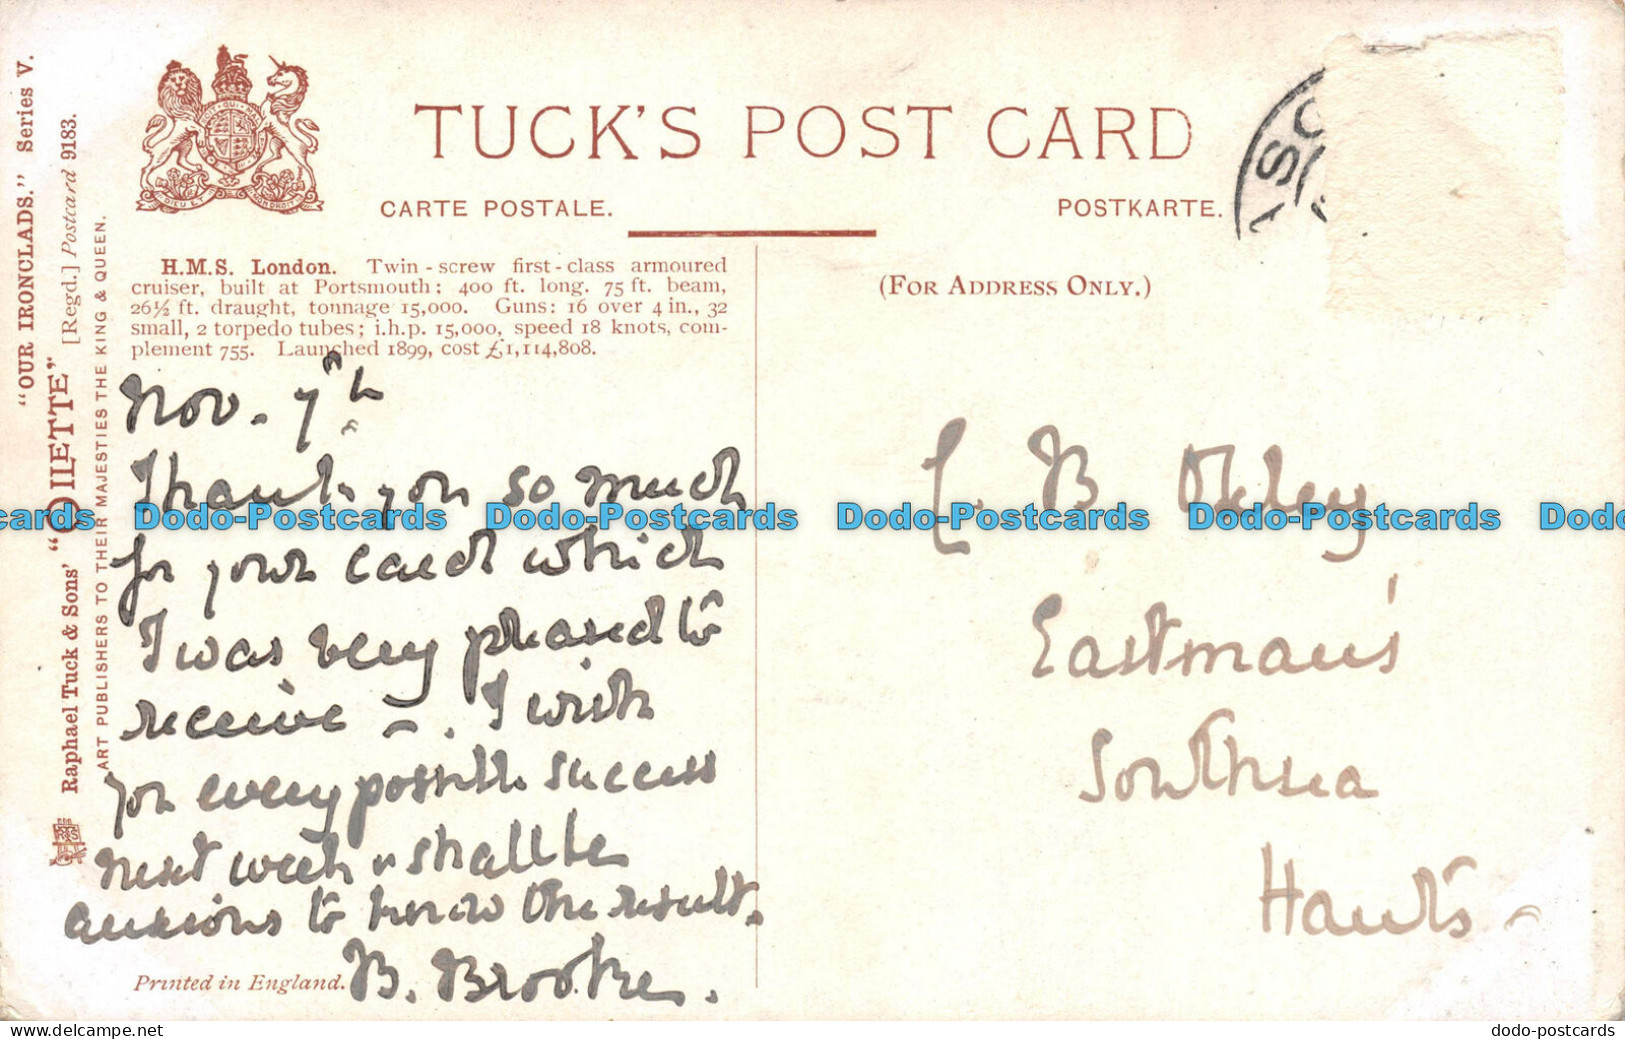 "OUR IRONCLADS." Series V.
Raphael Tuck & Sons' "OILETTE" [Regd.] Postcard 9183.
ART PUBLISHERS TO THEIR MAJESTIES THE KING & QUEEN.
TUCK'S POST CARD
CARTE POSTALE. POSTKARTE.
H.M.S. London. Twin-screw first-class armoured
cruiser, built at Portsmouth; 400 ft. long. 75 ft. beam,
26½ ft. draught, tonnage 15,000. Guns: 16 over 4 in., 32
small, 2 torpedo tubes; i.h.p. 15,000, speed 18 knots, com-
plement 755. Launched 1899, cost £1,114,808.
Nov. 7th
Thank you so much
for your card which
I was very pleased to
receive. I wish
you every possible success
next week & shall be
anxious to know the result.
B. Brooke.
Printed in England.
(FOR ADDRESS ONLY.)
B Oxley
Eastman's
Southsea
Hants
Dodo-Postcards Dodo-Postcards Dodo-Postcards Dodo-Postcards
delcampe.net
dodo-postcards